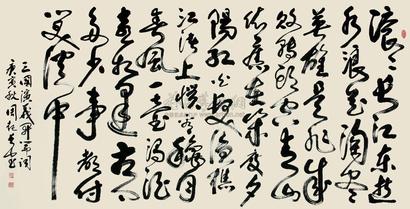 滚滚长江东逝
水浪花淘尽
英雄是非成
败转头空青山
依旧在几度夕
阳红白发渔樵
江渚上惯看秋月
春风一壶浊酒
喜相逢古今
多少事都付
笑谈中
三国演义开篇词
庚寅秋周